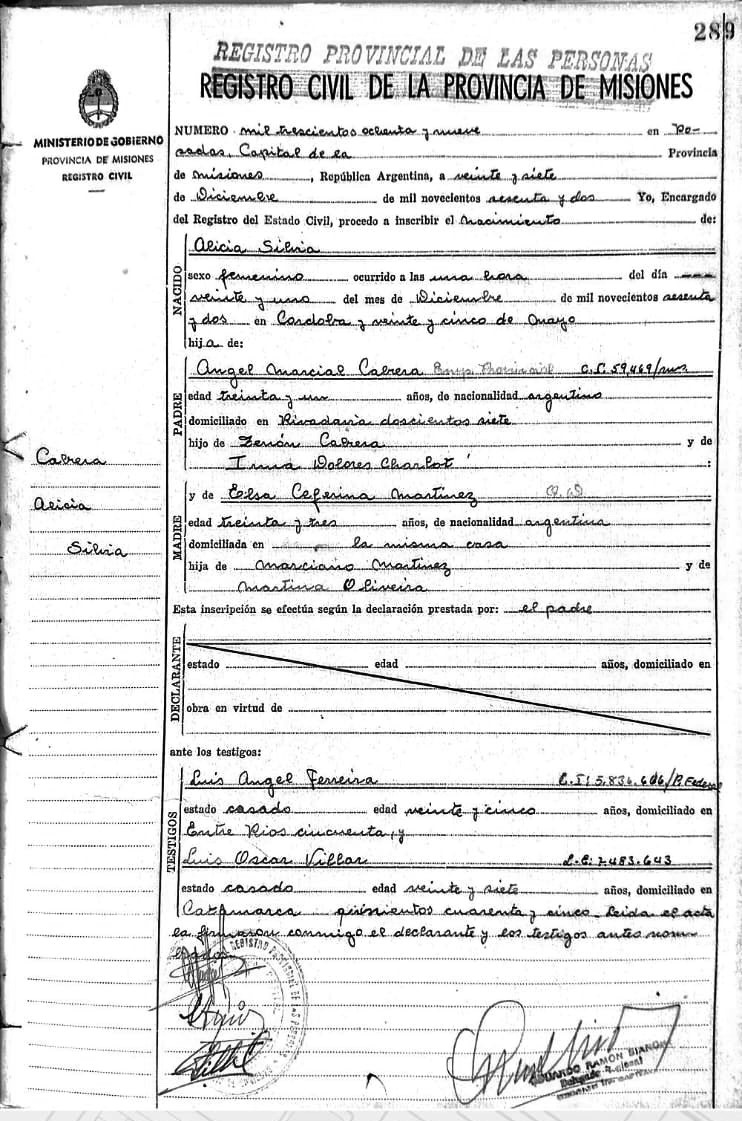 289
REGISTRO PROVINCIAL DE LAS PERSONAS
REGISTRO CIVIL DE LA PROVINCIA DE MISIONES
MINISTERIO DE GOBIERNO
PROVINCIA DE MISIONES
REGISTRO CIVIL
NUMERO mil trescientos ochenta y nueve en Po-
sadas, Capital de la Provincia
de misiones, República Argentina, a veinte y siete
de Diciembre de mil novecientos sesenta y dos Yo, Encargado
del Registro del Estado Civil, procedo a inscribir el nacimiento de:
NACIDO
Alicia Silvia
sexo femenino ocurrido a las una hora del día
veinte y uno del mes de Diciembre de mil novecientos sesenta
y dos en Cordoba y veinte y cinco de Mayo
hija de:
PADRE
Angel Marcial Cabrera Emp. Provincial C.I. 59,469/ms.
edad treinta y un años, de nacionalidad argentino
domiciliado en Rivadavia doscientos siete
hijo de Zenón Cabrera y de
Irma Dolores Charlot :
MADRE
y de Elsa Ceferina Martinez
edad treinta y tres años, de nacionalidad argentina
domiciliada en la misma casa
hija de Marciano Martinez y de
Martina Oliveira
Cabrera
Alicia
Silvia
Esta inscripción se efectúa según la declaración prestada por: el padre
DECLARANTE
estado edad años, domiciliado en
obra en virtud de
ante los testigos:
TESTIGOS
Luis Angel Ferreira C.I: 5.836.606/P. Federal
estado casado edad veinte y cinco años, domiciliado en
Entre Rios cincuenta, y
Luis Oscar Villar L.E: 7.483.643
estado casado edad veinte y siete años, domiciliado en
Catamarca quinientos cuarenta y cinco. Leida el acta
la firmaron conmigo el declarante y los testigos antes nom-
brados.
EDUARDO RAMON BIANCHI